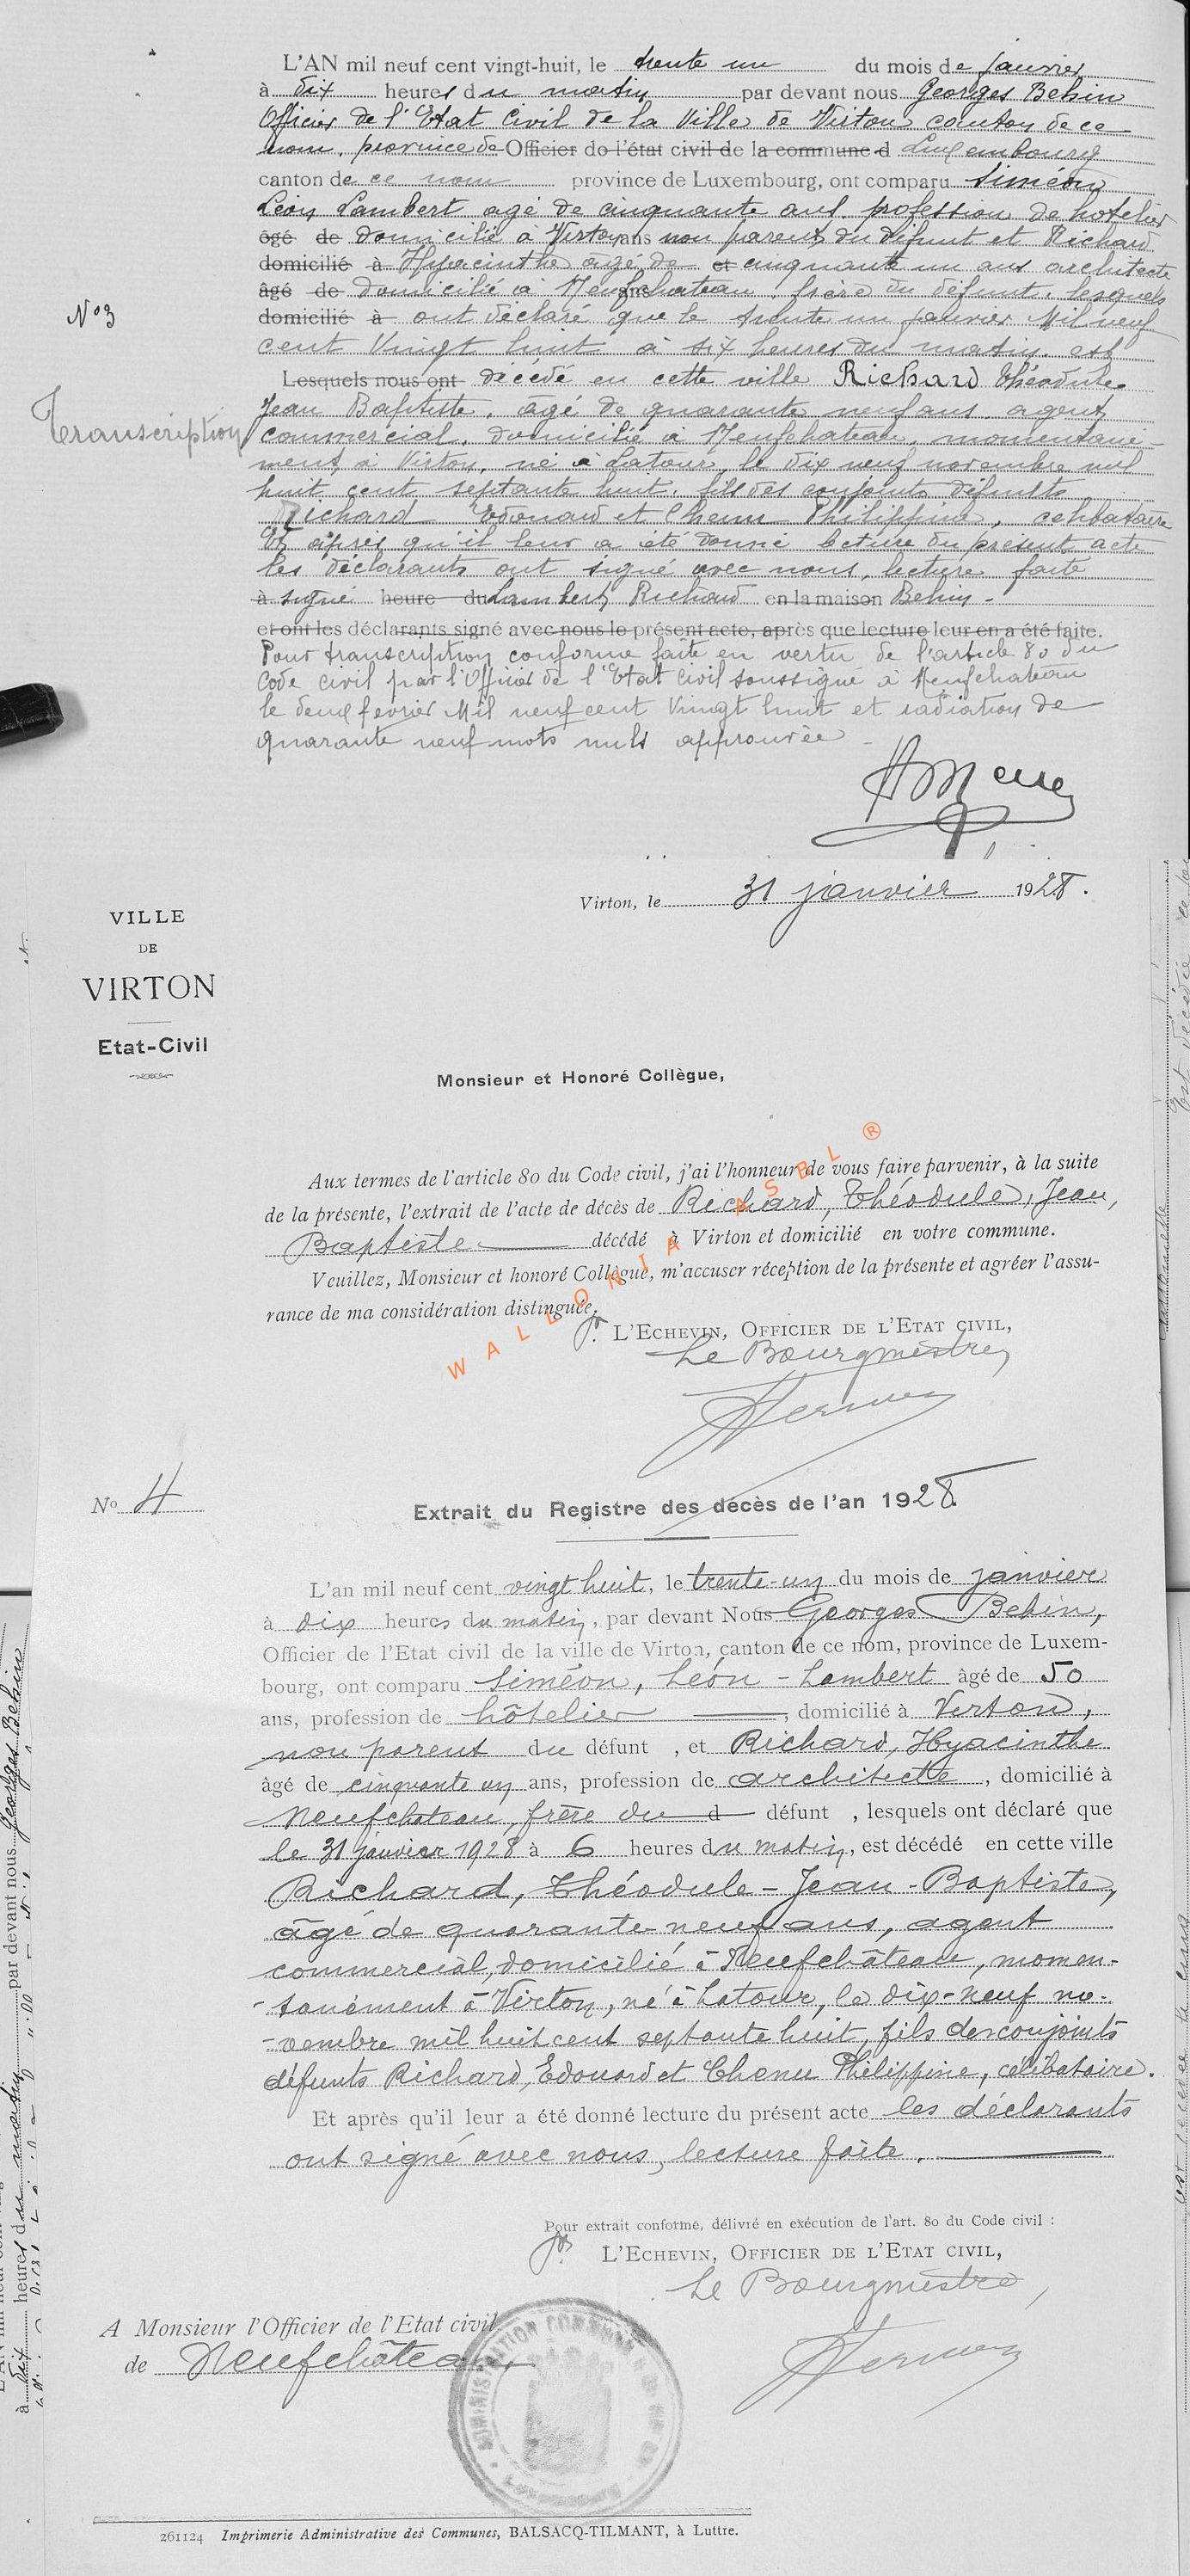 L'AN mil neuf cent vingt-huit, le trente un du mois de janvier
à dix heures du matin par devant nous Georges Behin
Officier de l'Etat Civil de la Ville de Virton canton de ce
nom, province de Officier de l'état civil de la commune d Luxembourg
canton de ce nom province de Luxembourg, ont comparu Siméon
Léon Lambert agé de cinquante ans, profession de hotelier
âgé de domicilié à Virton ans non parent du défunt et Richard
domicilié à Hyacinthe agé de et cinquante un ans architecte
âgé de domicilié à Neufchateau, frère du défunt, lesquels
N° 3
domicilié à ont déclaré que le trente un janvier Mil neuf
cent Vingt huit à six heures du matin, est
Lesquels nous ont décédé en cette ville Richard Théodule
Jean Baptiste, âgé de quarante neuf ans, agent
Transcription
commercial, domicilié à Neufchateau, momentané-
ment à Virton, né à Latour, le dix neuf novembre mil
huit cent septante huit, fils des conjoints défunts
Richard Edouard et Chenu Philippine, célibataire
Et après qu'il leur a été donné lecture du présent acte
les déclarants ont signé avec nous, lecture faite
à signé heure du Lambert, Richard en la maison Behin -
et ont les déclarants signé avec nous le présent acte, après que lecture leur en a été faite.
Pour transcription conforme faite en vertu de l'article 80 du
Code civil par l'Officier de l'Etat Civil soussigné à Neufchateau
le deux février Mil neuf cent Vingt huit et radiation de
quarante neuf mots nuls approuvée -
Virton, le 31 janvier 1928.
VILLE
DE
VIRTON
Etat-Civil
Monsieur et Honoré Collègue,
Aux termes de l'article 80 du Code civil, j'ai l'honneur de vous faire parvenir, à la suite
de la présente, l'extrait de l'acte de décès de Richard, Théodule, Jean,
Baptiste décédé à Virton et domicilié en votre commune.
Veuillez, Monsieur et honoré Collègue, m'accuser réception de la présente et agréer l'assu-
rance de ma considération distinguée.
WALLONIA ASBL ®
pr. L'ECHEVIN, OFFICIER DE L'ETAT CIVIL,
Le Bourgmestre,
No 4
Extrait du Registre des décès de l'an 1928.
L'an mil neuf cent vingt huit, le trente-un du mois de janvier
à dix heures du matin, par devant Nous Georges Behin,
Officier de l'Etat civil de la ville de Virton, canton de ce nom, province de Luxem-
bourg, ont comparu Siméon, Léon - Lambert âgé de 50
ans, profession de hôtelier, domicilié à Virton,
non parent du défunt, et Richard, Hyacinthe
âgé de cinquante un ans, profession de architecte, domicilié à
Neufchateau, frère du d défunt, lesquels ont déclaré que
le 31 janvier 1928 à 6 heures du matin, est décédé en cette ville
Richard, Théodule - Jean - Baptiste,
âgé de quarante neuf ans, agent
commercial, domicilié à Neufchâteau, momen-
-tanément à Virton, né à Latour, le dix-neuf no-
-vembre mil huit cent septante huit, fils des conjoints
défunts Richard, Edouard et Chenu Philippine, célibataire.
Et après qu'il leur a été donné lecture du présent acte les déclarants
ont signé avec nous, lecture faite.
Pour extrait conforme, délivré en exécution de l'art. 80 du Code civil :
pr. L'ECHEVIN, OFFICIER DE L'ETAT CIVIL,
Le Bourgmestre,
A Monsieur l'Officier de l'Etat civil
de Neufchâteau,
261124 Imprimerie Administrative des Communes, BALSACQ-TILMANT, à Luttre.
par devant nous Georges Behin
à dix heures du matin